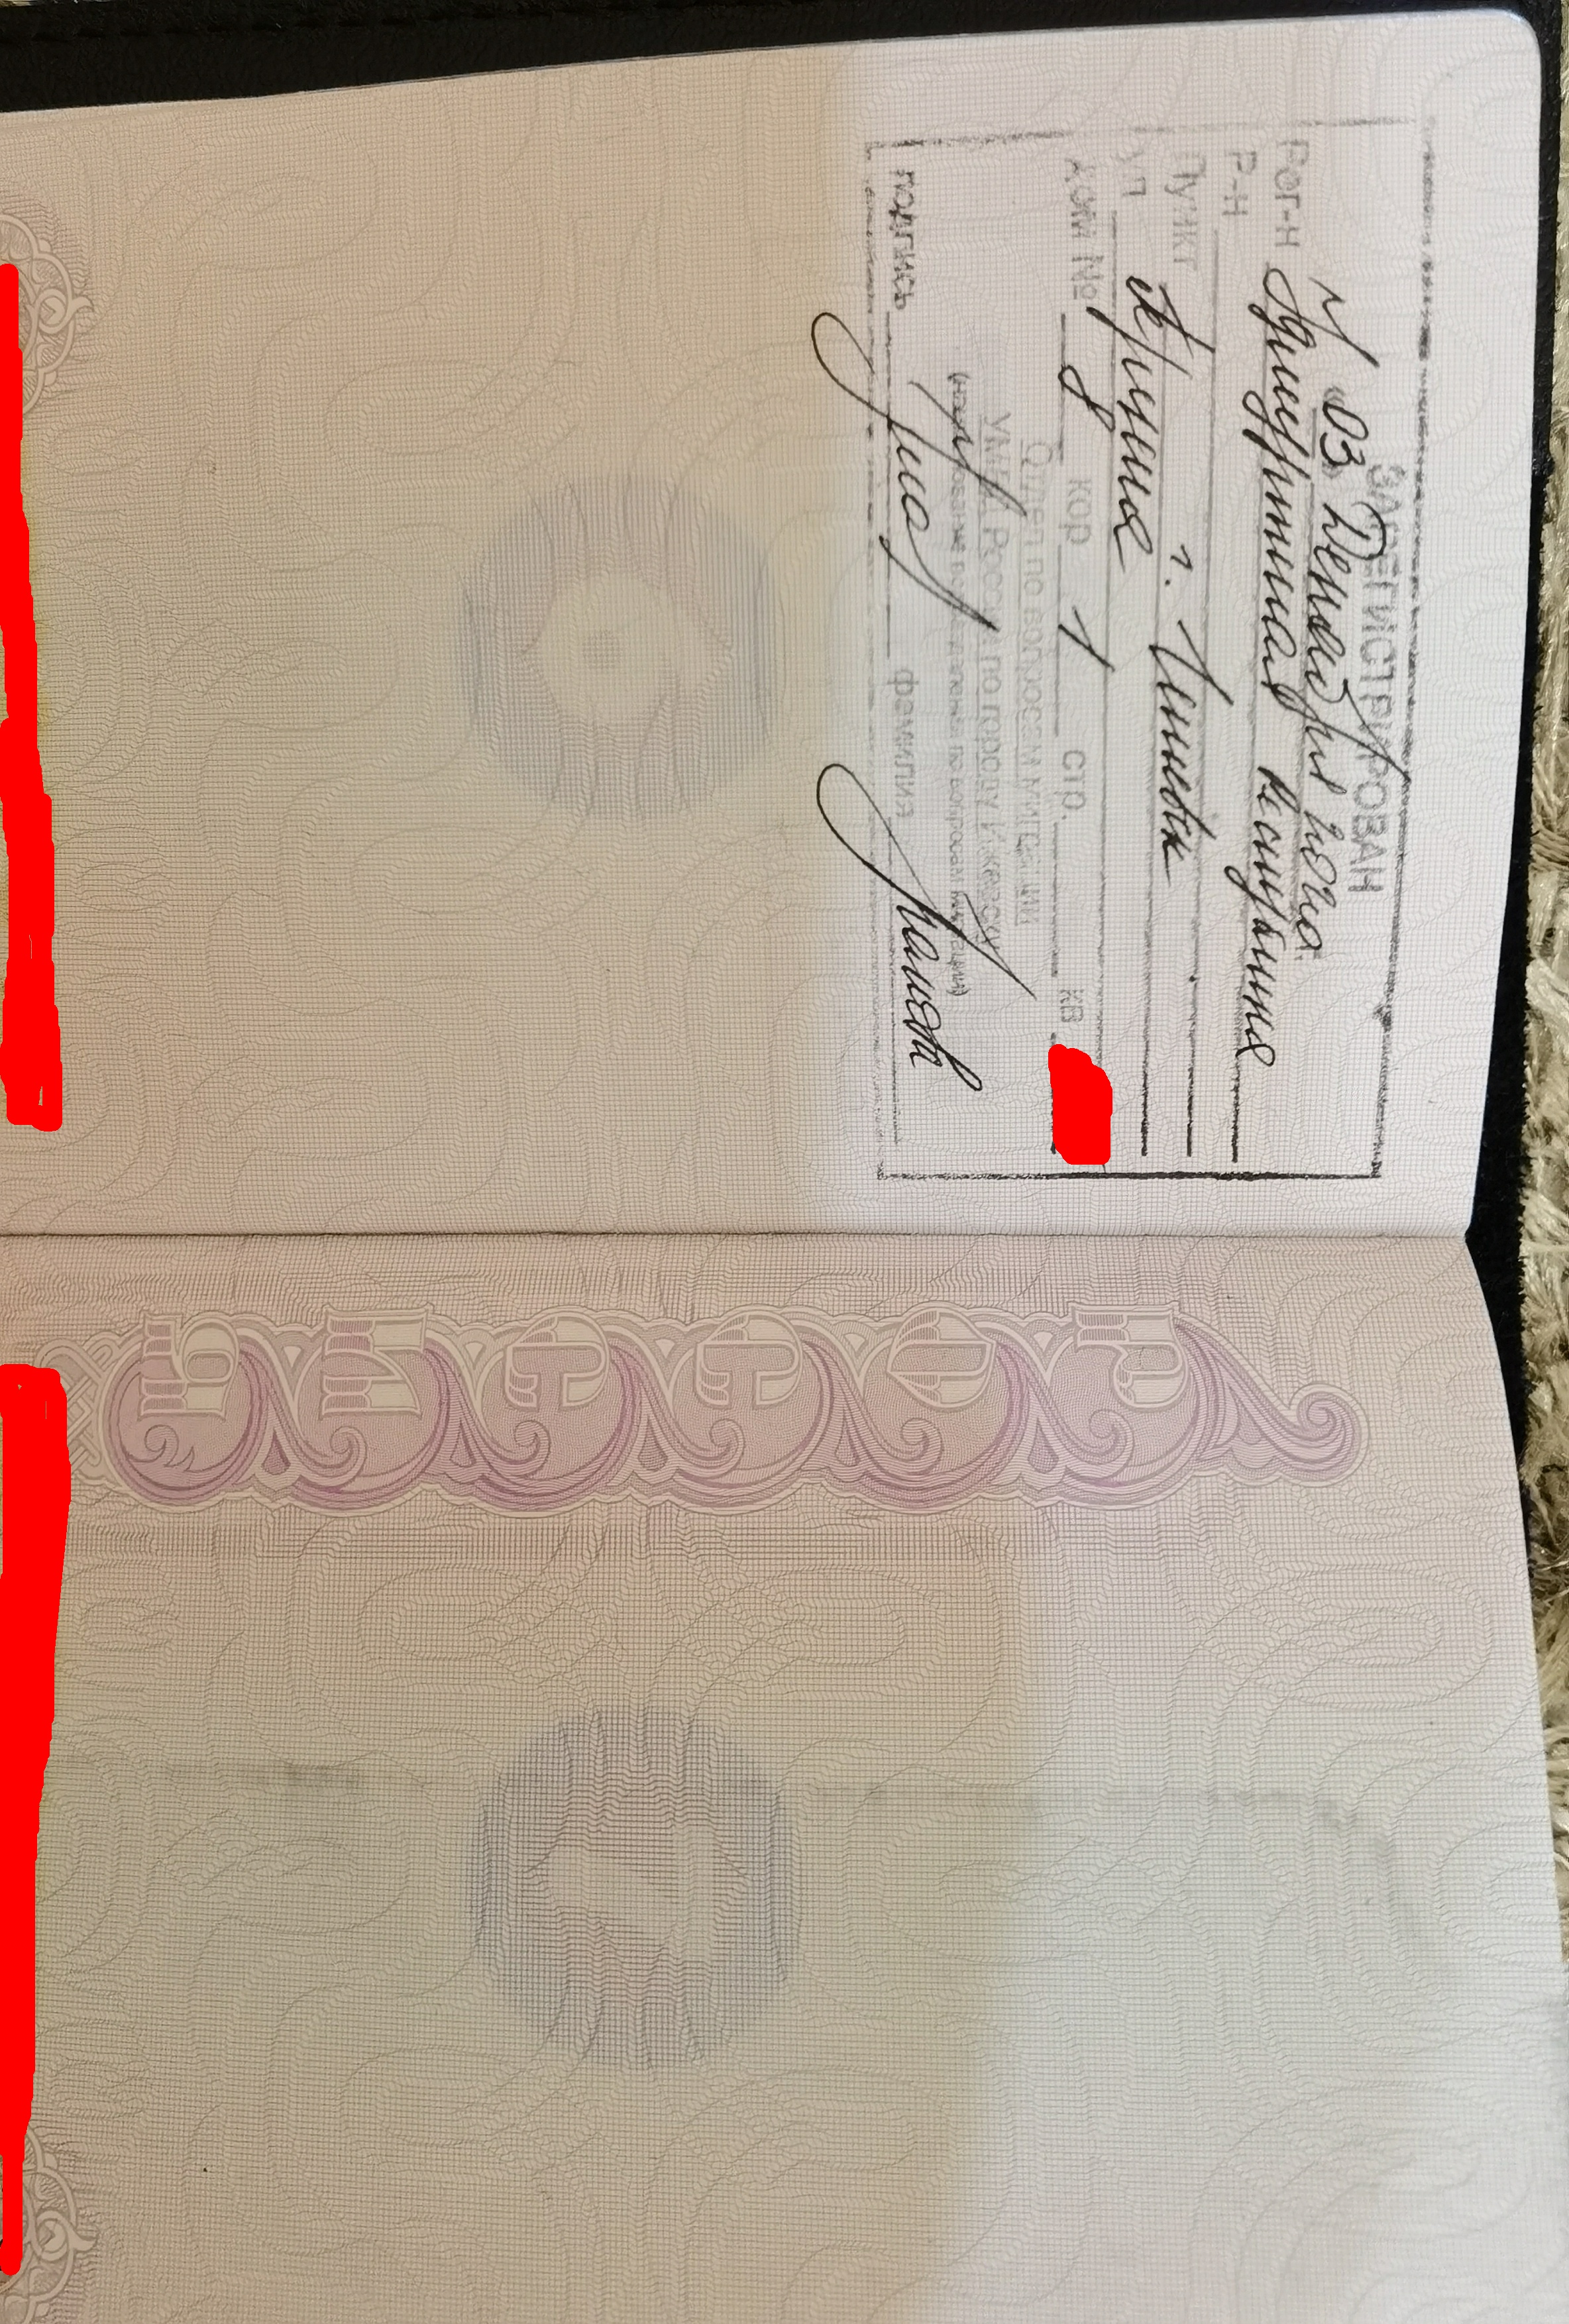 ЗАРЕГИСТРИРОВАН
"03" Декабря года
Рег-н Удмуртская Республика
Р-Н
Пункт г. Ижевск
ул
дом № 8 кор 1 стр. кв
Отдел по вопросам миграции
УМВД России по городу Ижевску
(наименование подразделения по вопросам миграции)
подпись фамилия